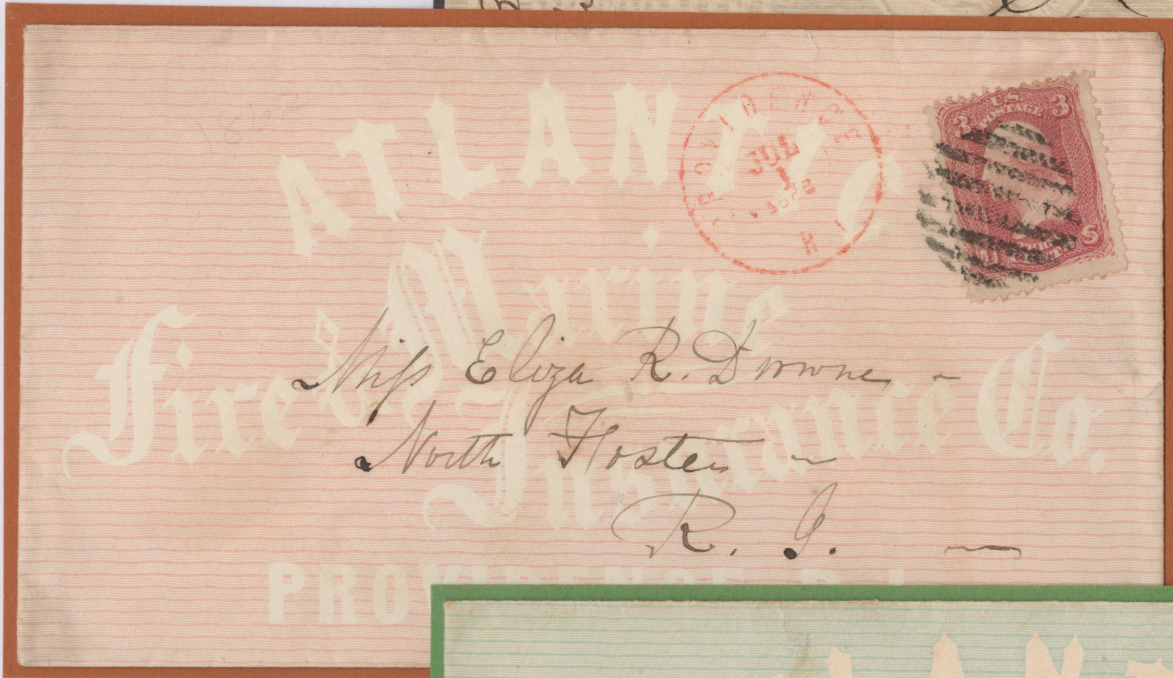 ATLANTIC
Fire & Marine
Insurance Co.
PROVIDENCE R.I.
PROVIDENCE
JUL
R.I.
U.S.
POSTAGE
3 3
Miss Eliza R.
North Foster
R. I.
LANT